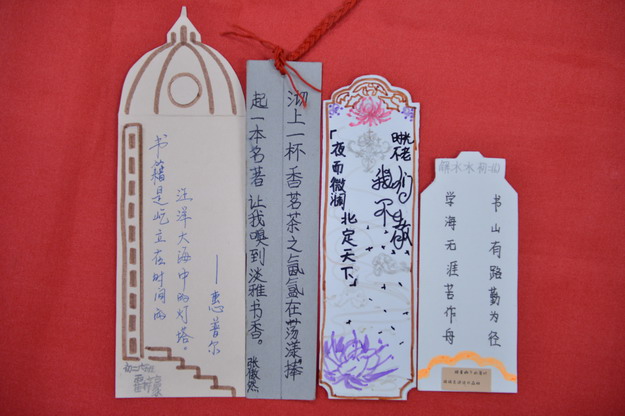 书籍是屹立在时间的
汪洋大海中的灯塔。
——惠普尔
沏上一杯香茗茶之氤氲在荡漾。捧
起一本名著 让我嗅到淡雅书香。
我们不
「夜雨微澜
北定天下」
书山有路勤为径
学海无涯苦作舟